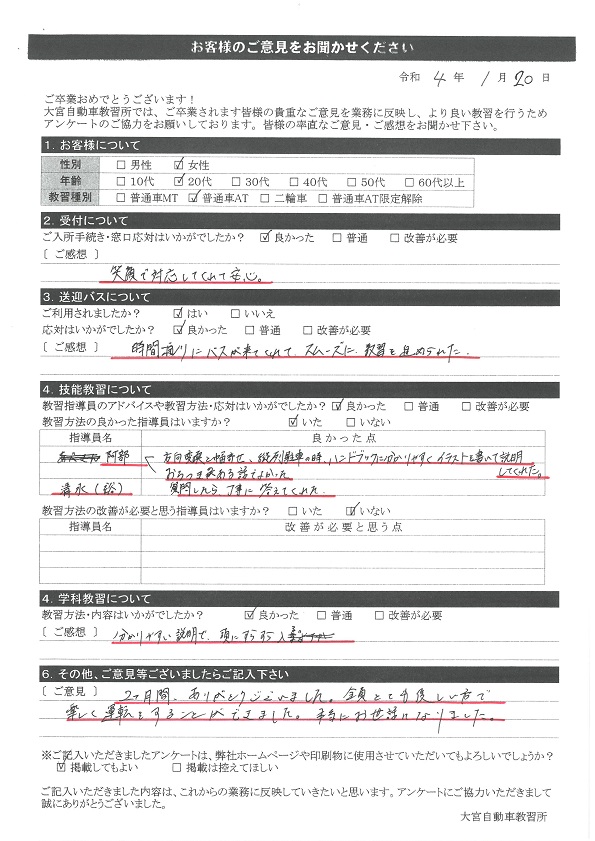 お客様のご意見をお聞かせください
令和 4 年 1 月 20 日
ご卒業おめでとうございます！
大宮自動車教習所では、ご卒業されます皆様の貴重なご意見を業務に反映し、より良い教習を行うため
アンケートのご協力をお願いしております。皆様の率直なご意見・ご感想をお聞かせ下さい。
1. お客様について
性別 □ 男性 ☑ 女性
年齢 □ 10代 ☑ 20代 □ 30代 □ 40代 □ 50代 □ 60代以上
教習種別 □ 普通車MT ☑ 普通車AT □ 二輪車 □ 普通車AT限定解除
2. 受付について
ご入所手続き・窓口応対はいかがでしたか？ ☑ 良かった □ 普通 □ 改善が必要
〔 ご感想 〕
笑顔で対応してくれて安心。
3. 送迎バスについて
ご利用されましたか？ ☑ はい □ いいえ
応対はいかがでしたか？ ☑ 良かった □ 普通 □ 改善が必要
〔 ご感想 〕 時間通りにバスが来てくれて、スムーズに、教習を進められた。
4. 技能教習について
教習指導員のアドバイスや教習方法・応対はいかがでしたか？ ☑ 良かった □ 普通 □ 改善が必要
教習方法の良かった指導員はいますか？ ☑ いた □ いない
指導員名 良かった点
阿部 方向変換と幅寄せ、縦列駐車の時、ハンドブックに分かりやすくイラストを書いて説明
してくれた。
おちつき
清水（裕） 質問したら丁寧に答えてくれた。
教習方法の改善が必要と思う指導員はいますか？ □ いた ☑ いない
指導員名 改善が必要と思う点
4. 学科教習について
教習方法・内容はいかがでしたか？ ☑ 良かった □ 普通 □ 改善が必要
〔 ご感想 〕 分かりやすい説明で、頭にすらすら入
6. その他、ご意見等ございましたらご記入下さい
〔 ご意見 〕 2ヶ月間、ありがとうございました。全員とても優しい方で
楽しく運転をすることができました。本当にお世話になりました。
※ご記入いただきましたアンケートは、弊社ホームページや印刷物に使用させていただいてもよろしいでしょうか？
☑ 掲載してもよい □ 掲載は控えてほしい
ご記入いただきました内容は、これからの業務に反映していきたいと思います。アンケートにご協力いただきまして
誠にありがとうございました。
大宮自動車教習所